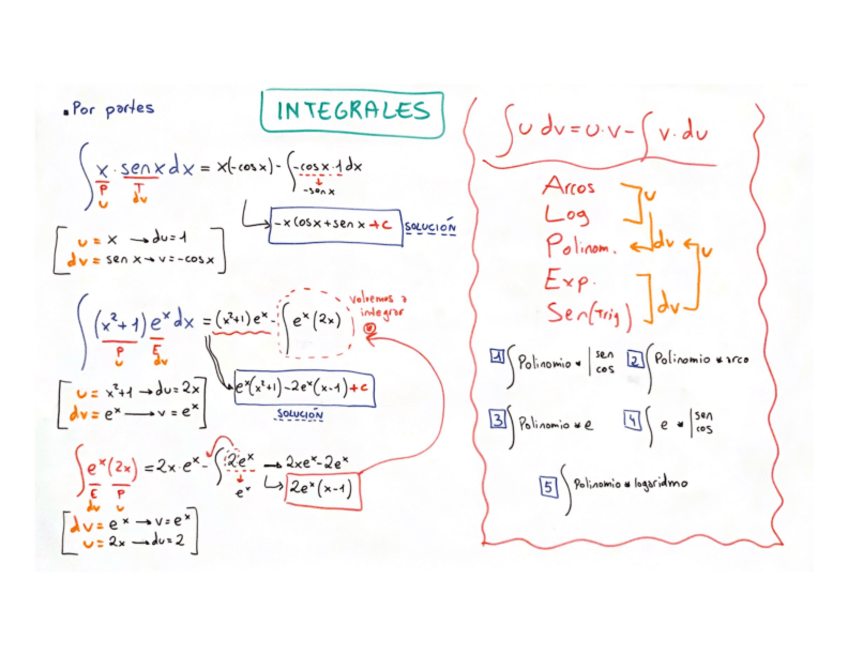 ▪Por partes
INTEGRALES
∫x·senxdx = x(-cosx) - ∫-cosx·1dx
P T
u dv
-senx
-xcosx+senx+c SOLUCIÓN
u = x → du=1
dv = sen x → v=-cosx
∫(x²+1)eˣdx = (x²+1)eˣ - ∫eˣ(2x)
P E
u dv
volvemos a
integrar
eˣ(x²+1)-2eˣ(x-1)+c
SOLUCIÓN
u = x²+1 → du=2x
dv = eˣ → v = eˣ
∫eˣ(2x) = 2x·eˣ - ∫2eˣ → 2xeˣ-2eˣ
E P
dv u
eˣ
2eˣ(x-1)
dv = eˣ → v=eˣ
u = 2x → du=2
∫u dv = u·v - ∫v·du
Arcos
Log
u
Polinom. dv u
Exp.
Sen(Trig) dv
1 ∫Polinomio * | sen cos
2 ∫Polinomio * arco
3 ∫Polinomio * e
4 ∫e * | sen cos
5 ∫Polinomio * logaridmo